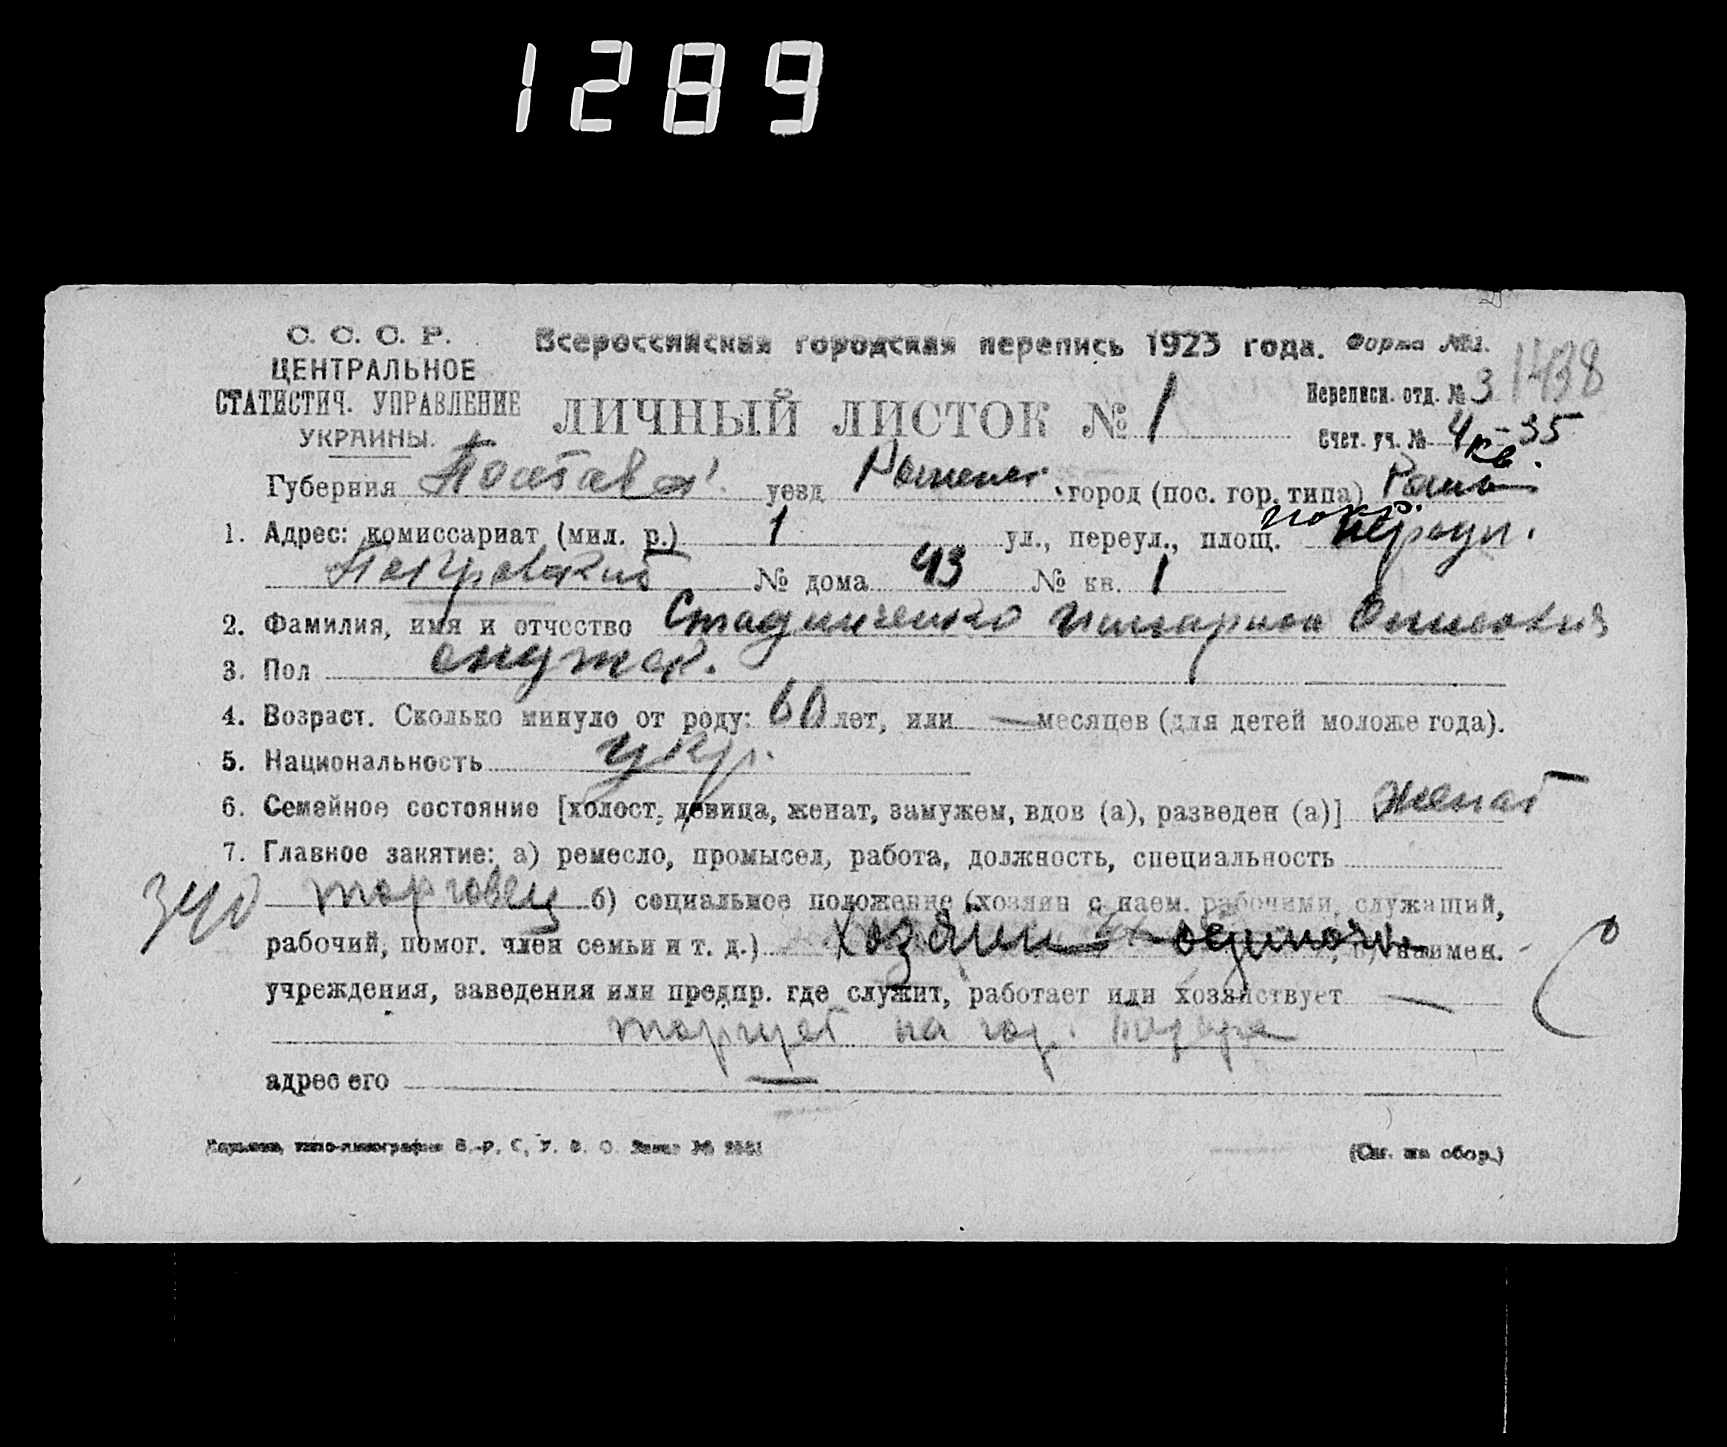 1289
С. С. С. Р. Всероссийская городская перепись 1923 года. Форма №1. 1438
ЦЕНТРАЛЬНОЕ
СТАТИСТИЧ. УПРАВЛЕНИЕ
УКРАИНЫ.
ЛИЧНЫЙ ЛИСТОК № 1
Переписн. отд. № 3
Счет. уч. № 4 - 35
кв.
Губерния Полтавск. уезд Роменск. город (пос. гор. типа) Ромны
1. Адрес: комиссариат (мил. р.) 1 ул., переул., площ. покр. переул.
Покровский № дома 43 № кв. 1
2. Фамилия, имя и отчество Стадниченко
3. Пол мужск.
4. Возраст. Сколько минуло от роду: 60 лет, или — месяцев (для детей моложе года).
5. Национальность укр.
6. Семейное состояние [холост, девица, женат, замужем, вдов (а), разведен (а)] женат
7. Главное занятие: а) ремесло, промысел, работа, должность, специальность
торговец б) социальное положение (хозяин с наем. рабочими, служащий,
рабочий, помог. член семьи и т. д.) хозяин одиночк , в) наимен.
учреждения, заведения или предпр. где служит, работает или хозяйствует —
торгует на гор. базаре
адрес его —
(См. на обор.)